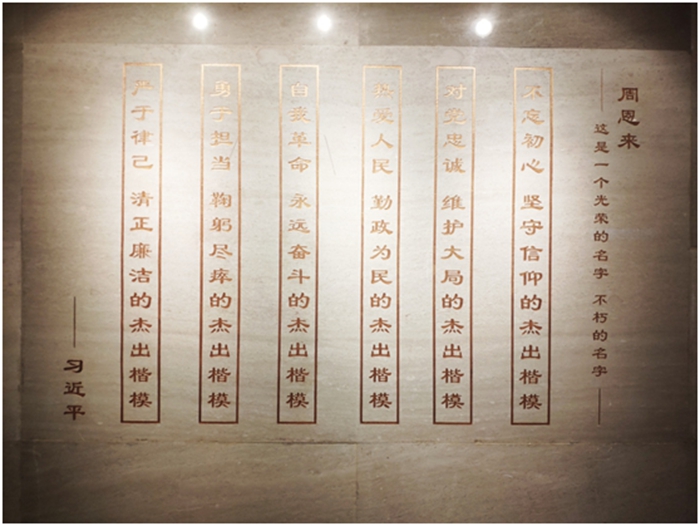 周恩来
这是一个光荣的名字 不朽的名字
不忘初心 坚守信仰的杰出楷模
对党忠诚 维护大局的杰出楷模
热爱人民 勤政为民的杰出楷模
自我革命 永远奋斗的杰出楷模
勇于担当 鞠躬尽瘁的杰出楷模
严于律己 清正廉洁的杰出楷模
——习近平